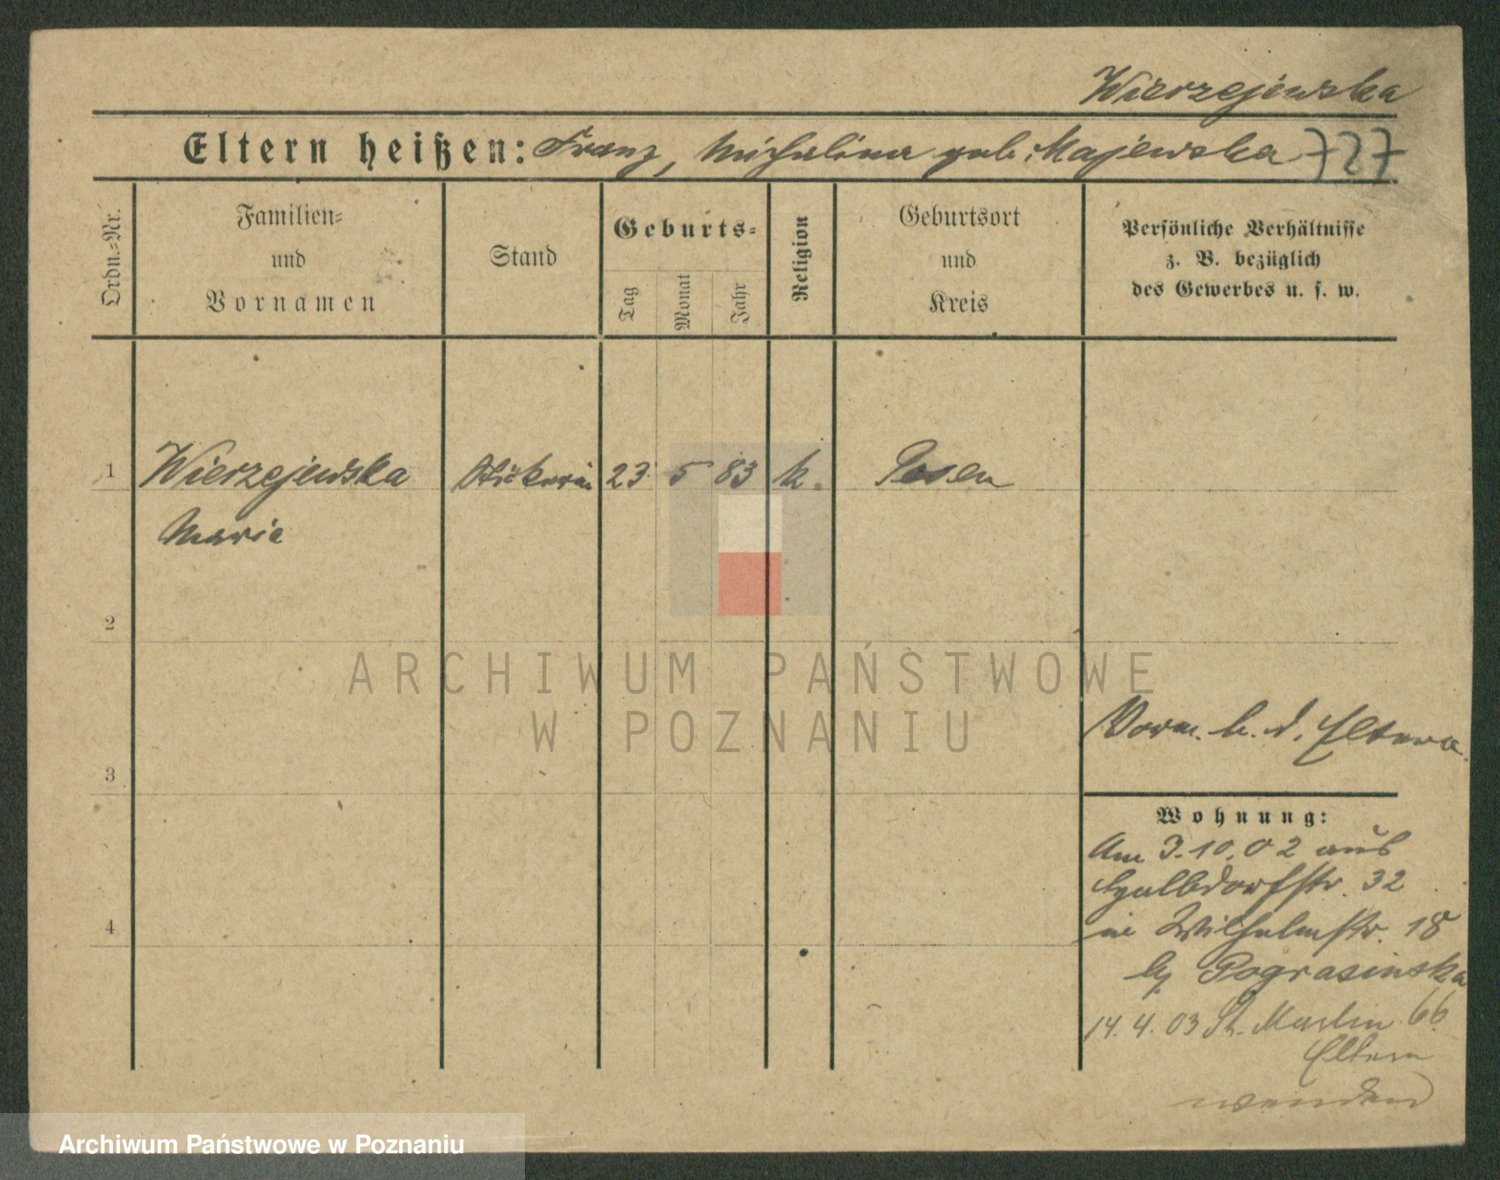 Wierzejewska
Eltern heißen: Franz, Michalina geb. Majewska 727
Ordn.=Nr.
Familien=
und
Vornamen
Stand
Geburts=
Tag
Monat
Jahr
Religion
Geburtsort
und
Kreis
Persönliche Verhältnisse
z. B. bezüglich
des Gewerbes u. s. w.
1 Wierzejewska Stickerin 23 5 83 k. Posen
Marie
2
ARCHIWUM PAŃSTWOWE
W POZNANIU
Vorm. b. d. Eltern
3
Wohnung:
Am 3.10.02 aus
Halbdorfstr. 32
in Wilhelmstr. 18
4
b/ Pograsinska
14.4.03 St. Martin 66
Eltern
wenden
Archiwum Państwowe w Poznaniu